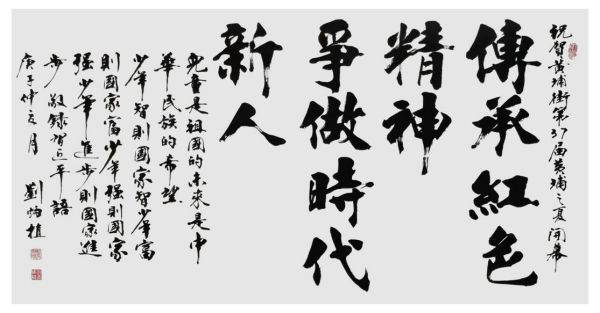 祝賀黃埔街第37屆黃埔之夏開幕
傳承紅色
精神
爭做時代
新人
兒童是祖國的未來是中
華民族的希望
少年智則國家智少年富
則國家富少年强則國家
强少年進步則國家進
步 敬録習近平語
庚子仲夏月
劉炳植